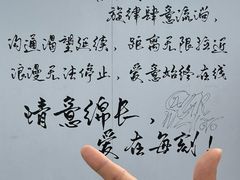 旋律肆意流淌，
沟通渴望延续，距离无限拉近
浪漫无法停止，爱意始终在线
情意绵长，
爱在每刻！